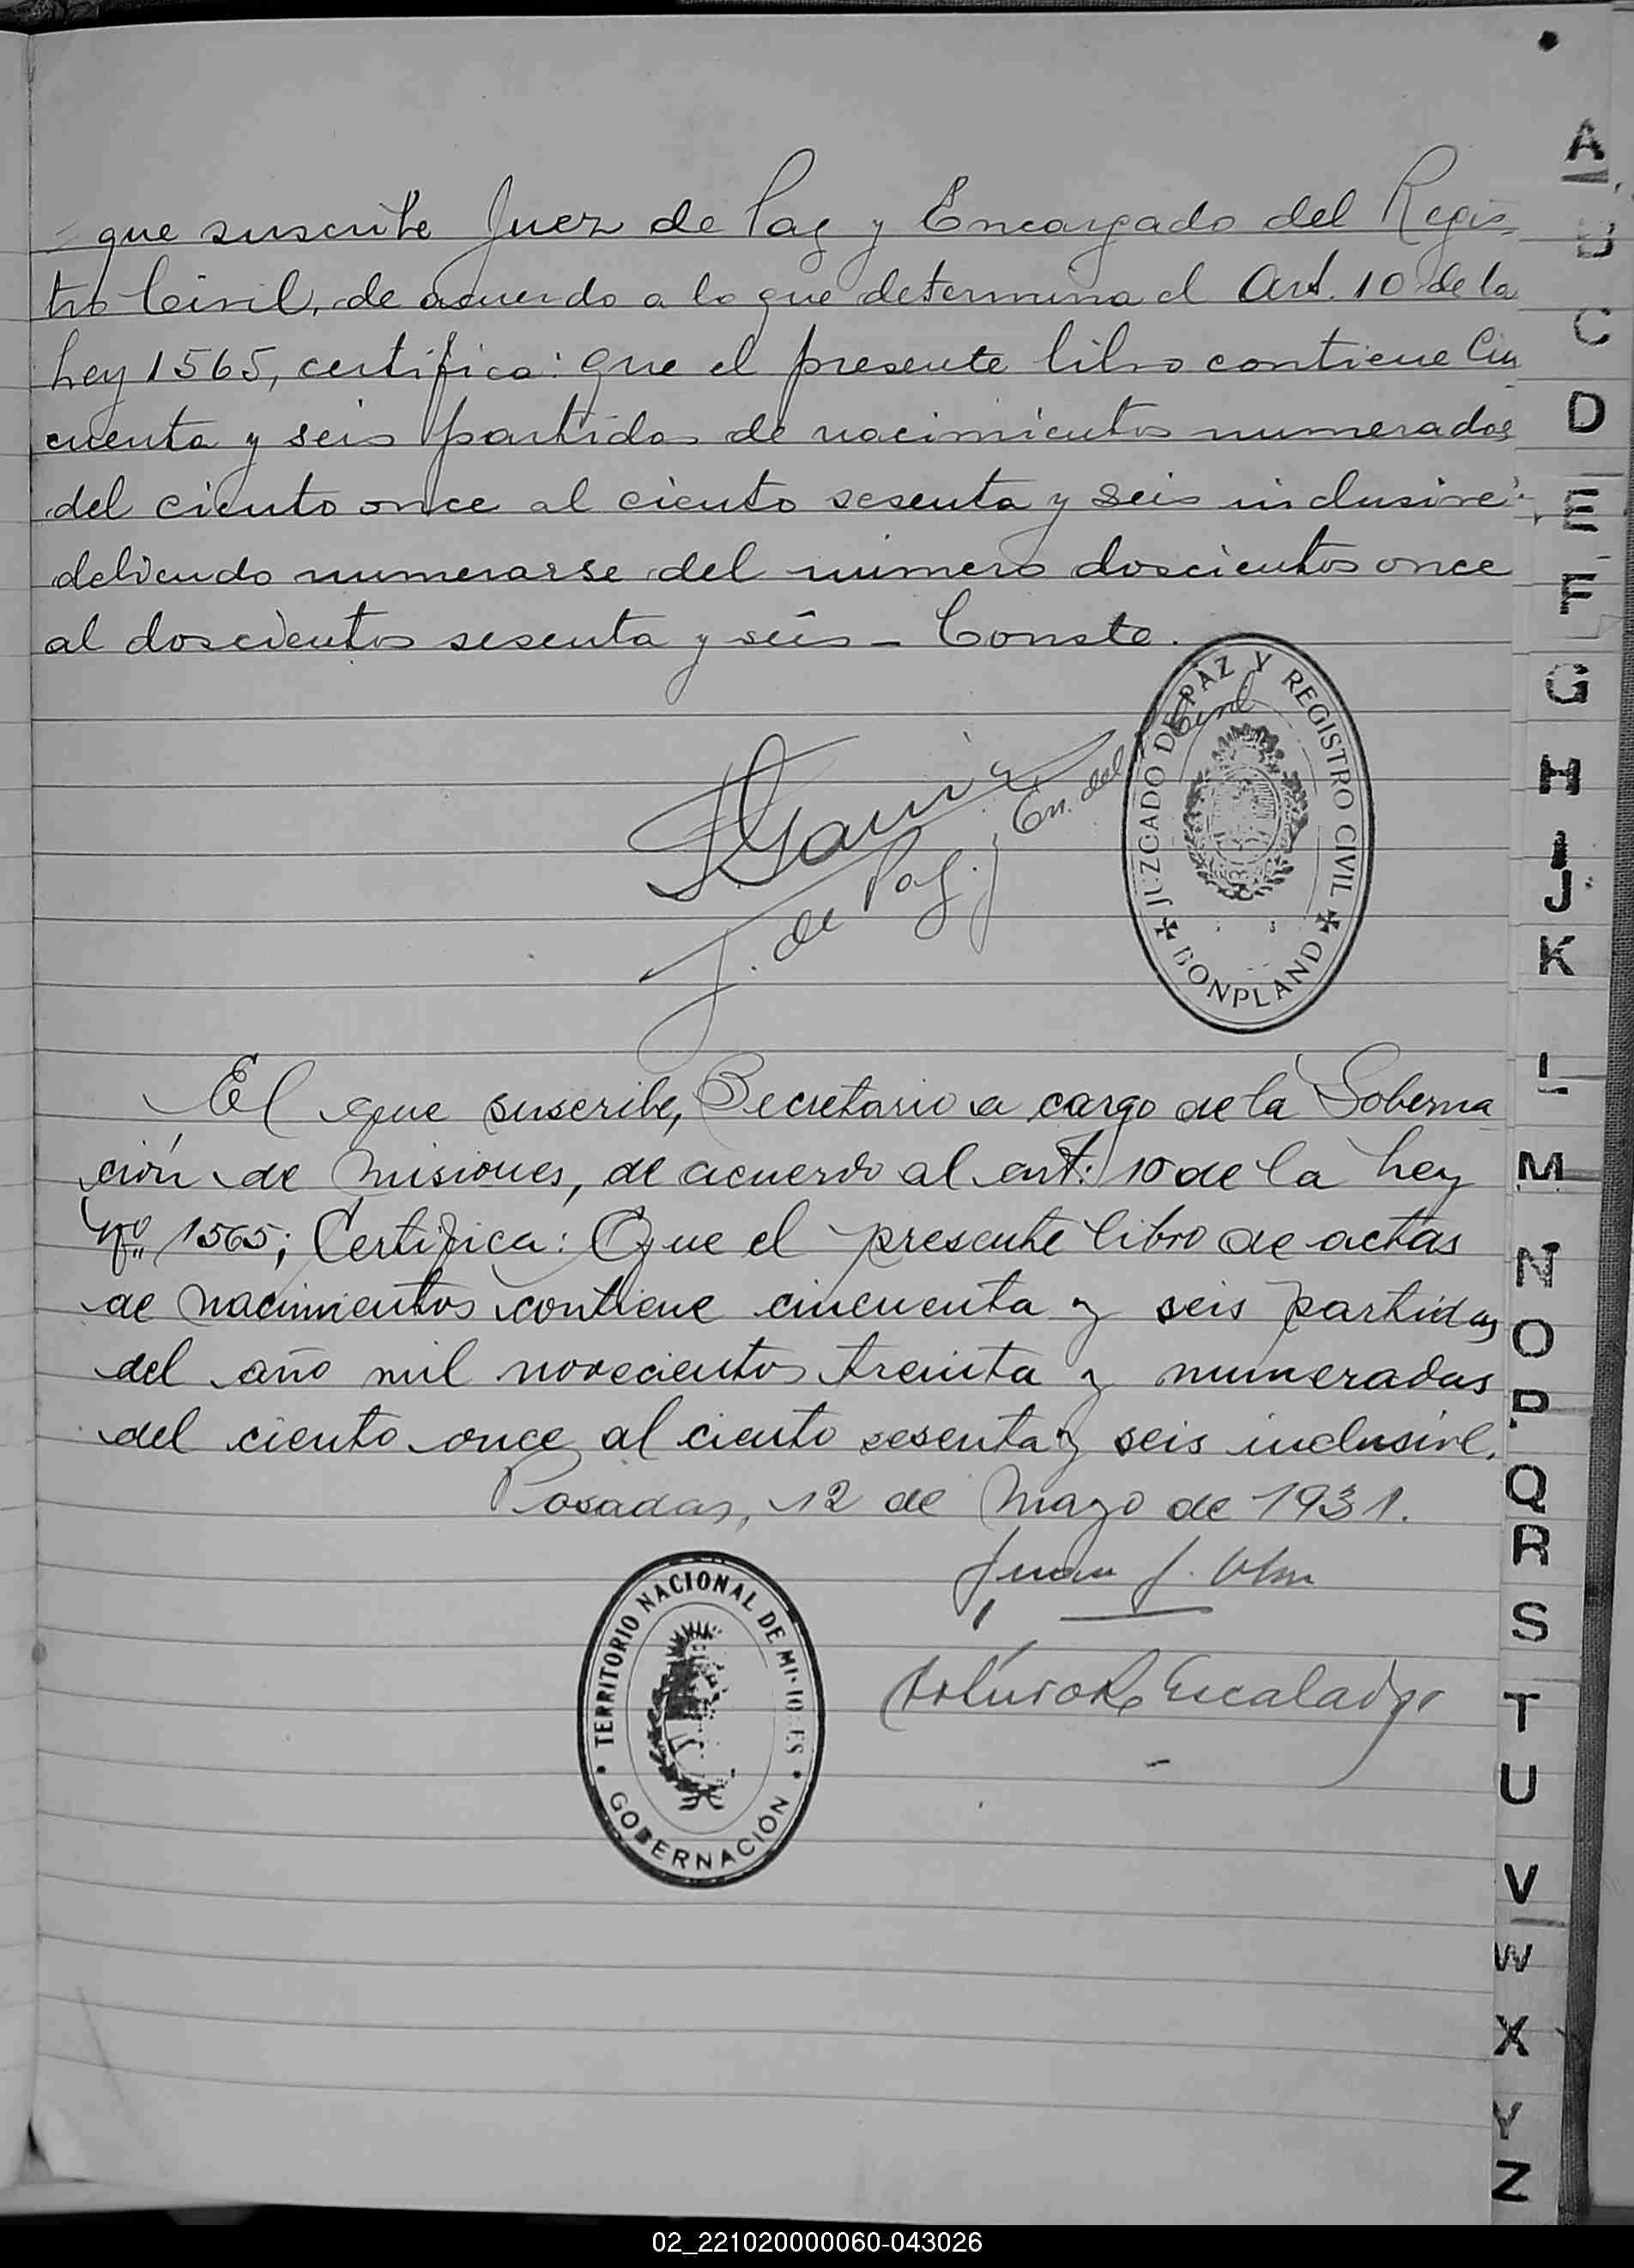 que suscribe Juez de Paz y Encargado del Regis-
tro Civil, de acuerdo a lo que determina el Art. 10 de la
Ley 1565, certifica: que el presente libro contiene Cin
cuenta y seis partidas de nacimientos numeradas
del ciento once al ciento sesenta y seis inclusive
debiendo numerarse del número doscientos once
al doscientos sesenta y seis - Conste.
J. de Paz y En. del Civil
JUZGADO DE PAZ Y REGISTRO CIVIL
BONPLAND
El que suscribe, Secretario a cargo de la Goberna
ción de Misiones, de acuerdo al art: 10 de la Ley
Nº 1565; Certifica: Que el presente libro de actas
de nacimientos contiene cincuenta y seis partidas
del año mil novecientos treinta y numeradas
del ciento once al ciento sesenta y seis inclusive.
Posadas, 12 de Mayo de 1931.
Juan J.
Escalada
TERRITORIO NACIONAL DE MISIONES
GOBERNACIÓN
A
B
C
D
E
F
G
H
I
J
K
L
M
N
O
P
Q
R
S
T
U
V
W
X
Y
Z
02_221020000060-043026